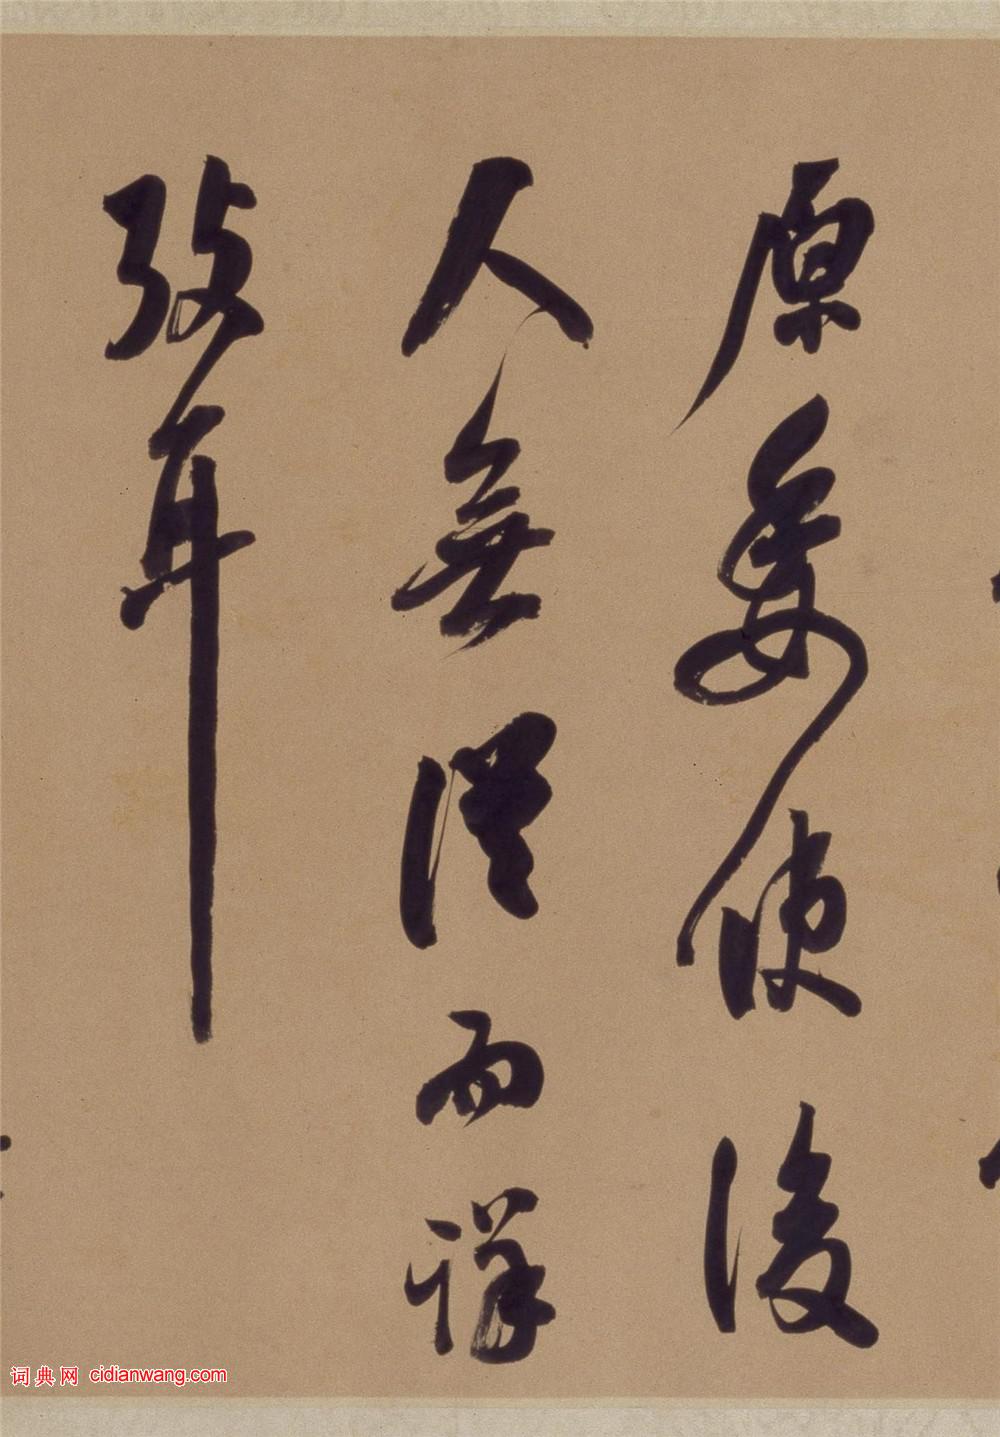 原委使後
人無從而詳
攷耳
词典网 cidianwang.com